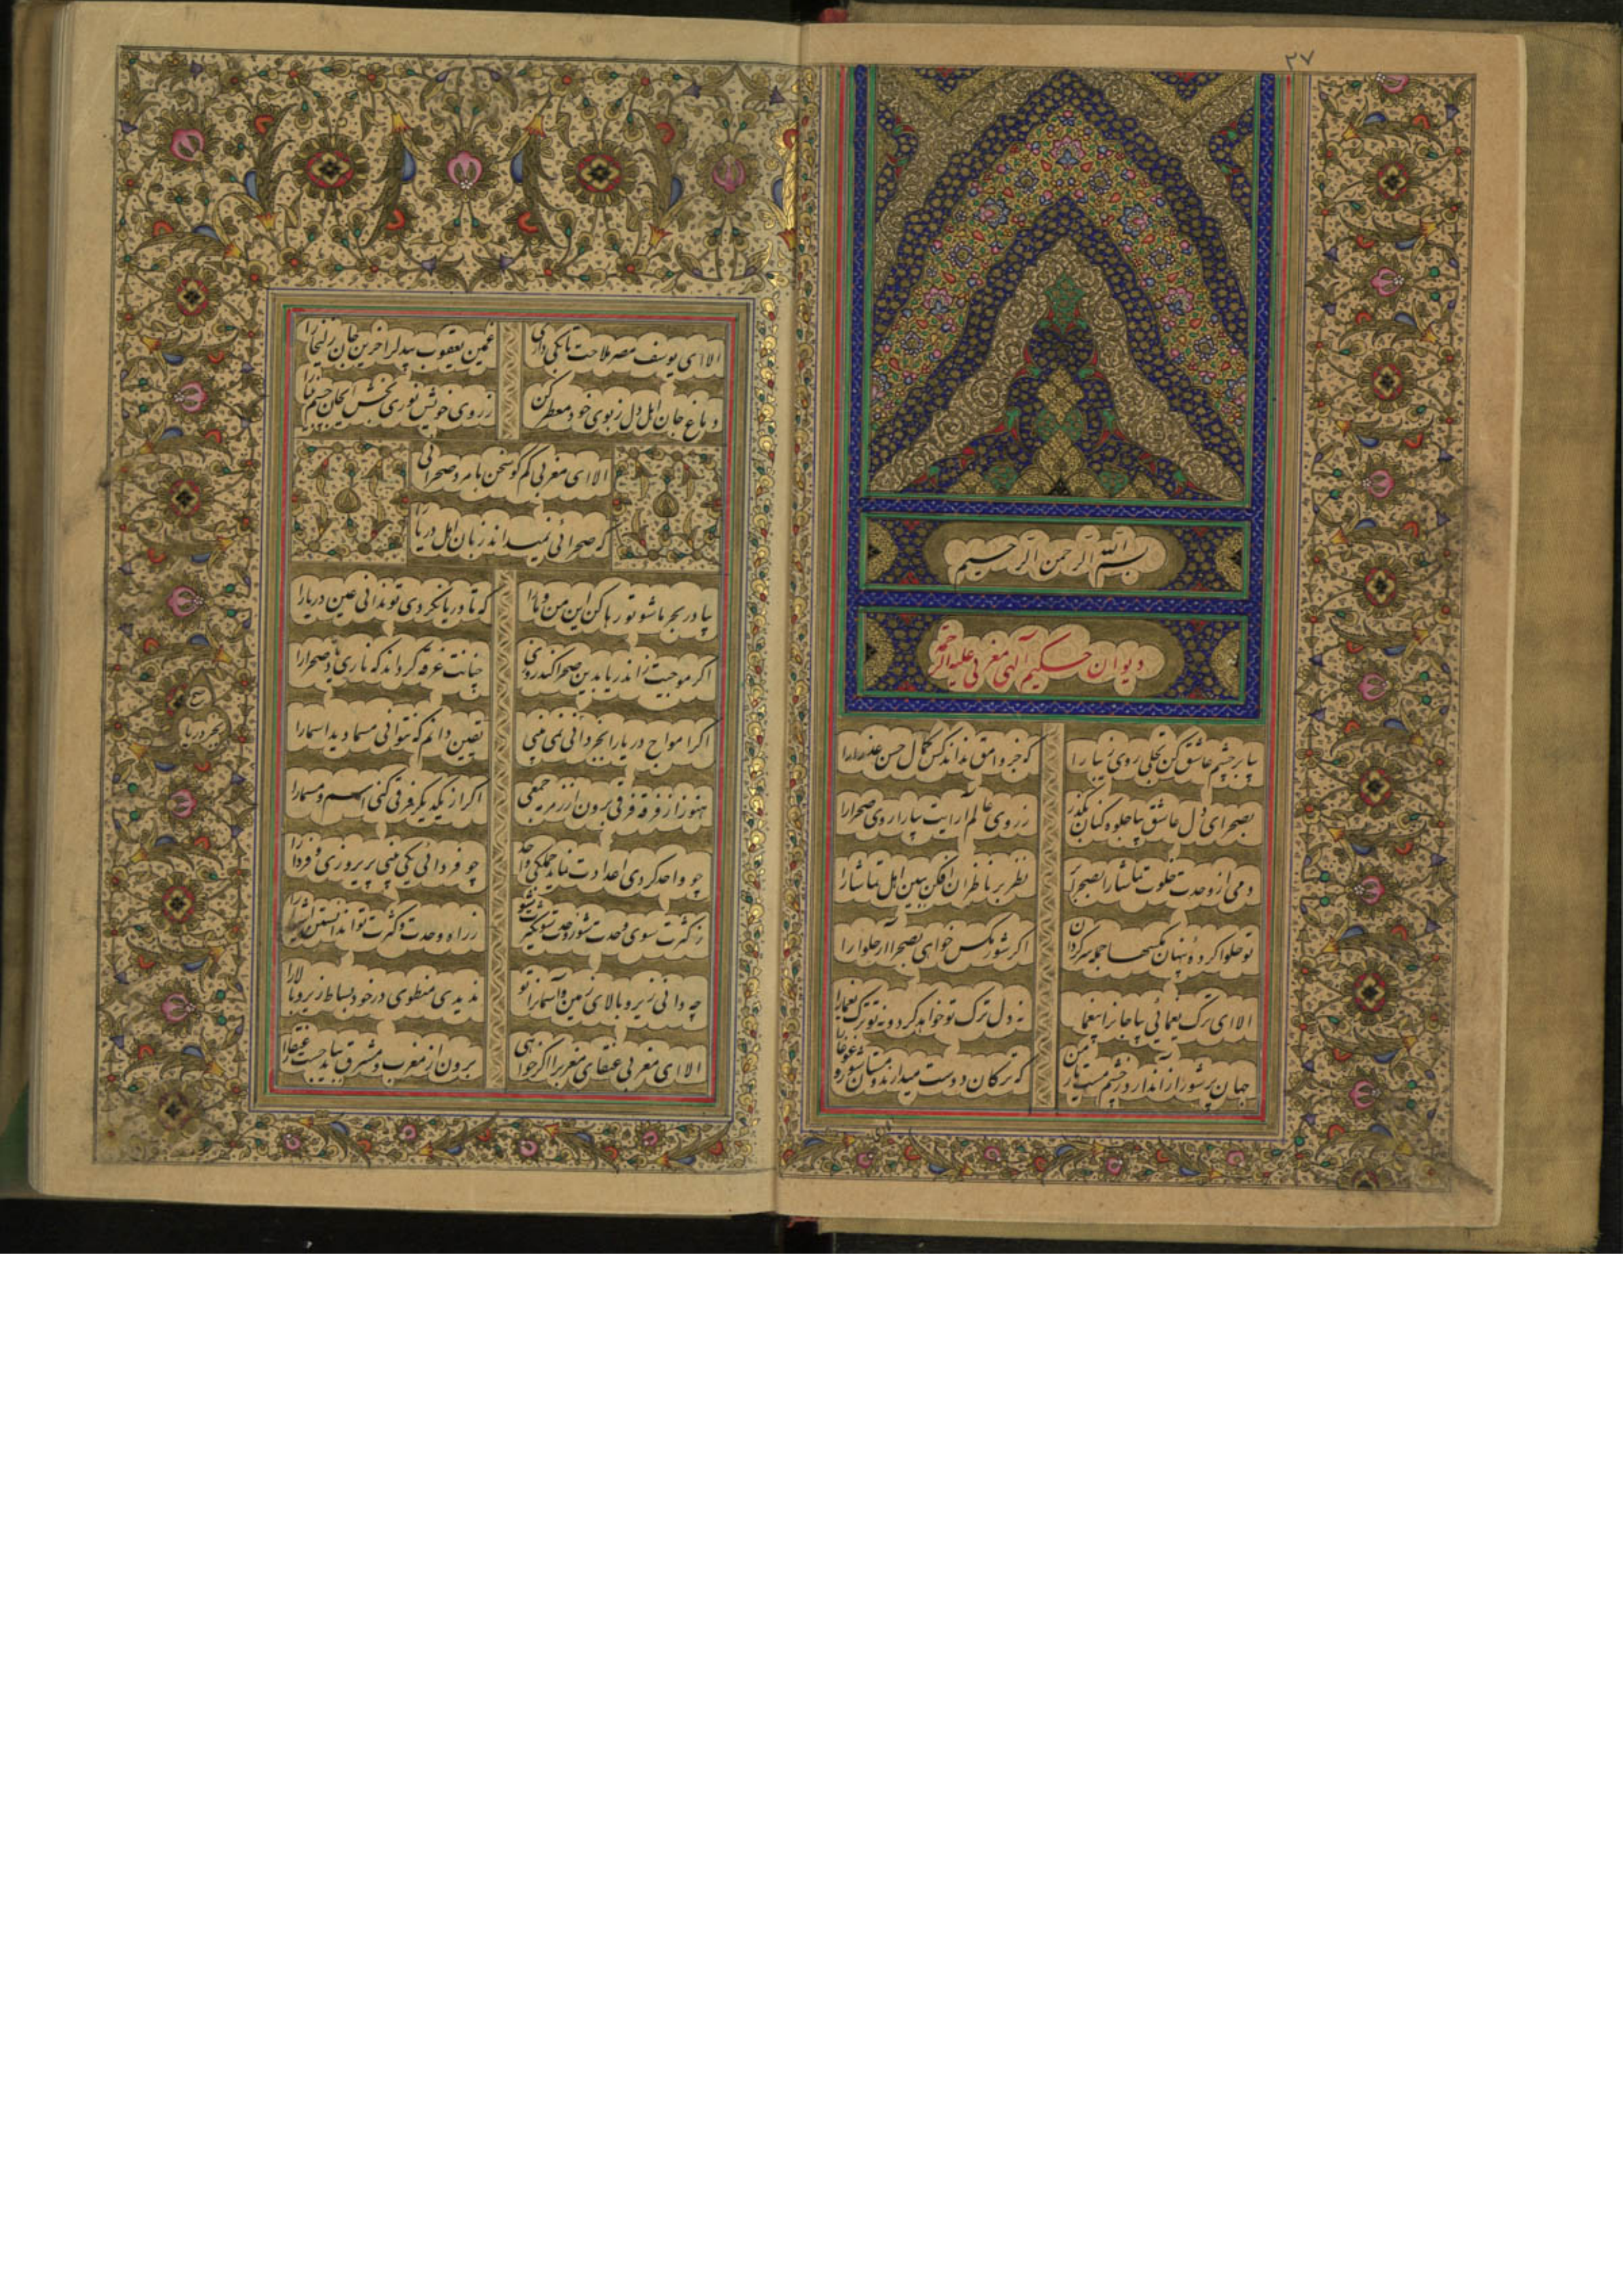 ۲۷
بسم الله الرحمن الرحیم
دیوان حکیم آلهی مغربی علیه الرحمه
بیا بر چشم عاشق کن تجلی روی زیبا را که جز وامق نداند کس کمال حسن عذرا را
بصحرای دل عاشق بیا جلوه کنان بگذر ز روی عالم آرایت بیارا روی صحرا را
دمی از وحدت خلوت تماشا را بصحرا نظر بر ناظران افکن ببین اهل تماشا را
تو حلوا کردهٔ پنهان مگسها جمله سرگردان اگر شور مگس خواهی بصحرا آر حلوا را
الا ای ترک یغمائی بیا جانرا بیغما نه دل ترک تو خواهد کرد و نه تو ترک یغما را
جهان پر شور از آن دارد دو چشم مست یار من که ترکان دوست میدارند مستان شور و غوغا را
الا ای یوسف مصر ملاحت تا بکی داری غمین یعقوب بیدل را حزین جان زلیخا را
دماغ جان اهل دل ز بوی خود معطر کن ز روی خویش نوری بخش چشم
الا ای مغربی کم گو سخن با مرد صحرائی
که صحرائی نمیداند زبان اهل دریا را
بیا در بحر با ما شو تو رها کن این من و ما را که تا دریا نگردی تو ندانی عین دریا را
اگر موجت از آن دریا بدین صحرا کند روزی چنانت غرقه گرداند که ناری یاد صحرا را
اگر امواج دریا را بجز دریا نمی بینی یقین دانم که نتوانی مسما دید اسما را
هنوز از فرقه فرقی برون از زمرهٔ جمعی اگر از یکدیگر فرقی کنی اسم و مسما را
چو واحد گردی اعدادت نماید جملگی واحد چو فردائی یکی بینی پریر و دی و فردا را
ز کثرت سوی وحدت شو ز وحدت سوی کثرت شو ز راه وحدت و کثرت توان دانستن اشیا را
چه دانی زیر و بالای زمین و آسمانرا تو ندیدی منطوی در خود بساط زیر و بالا را
الا ای مغربی عنقای مغرب را اگر خواهی برون از مغرب و مشرق بباید جست عنقا را
بحر دریا